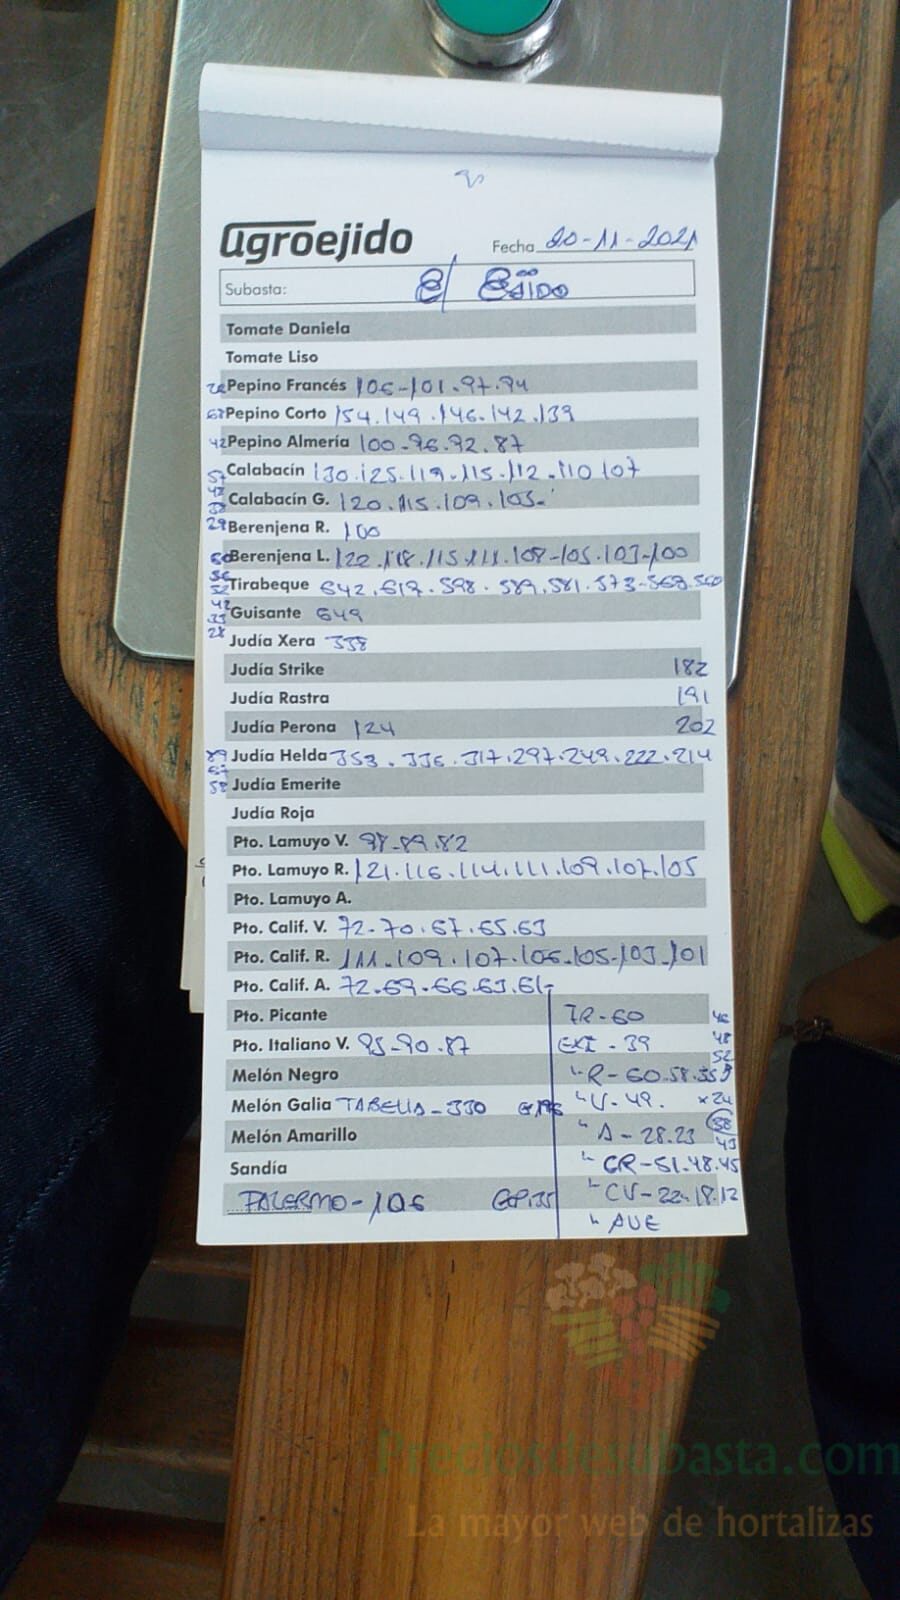 agroejido
Fecha 20-11-2021
Subasta: El Ejido
Tomate Daniela
Tomate Liso
Pepino Francés 106-101.97.94
67 Pepino Corto 154.149.146.142.139
42 Pepino Almería 100-96.92.87
57 Calabacín 130.125.119.115.112.110.107
Calabacín G. 120.115.109.103.
29 Berenjena R. 100
Berenjena L. 120.118.115.111.108-105.103-100
Tirabeque 642.617.598.589.581.573-568.560
Guisante 649
Judía Xera 338
Judía Strike 182
Judía Rastra 191
Judía Perona 124 202
89 Judía Helda 353.336.317.297.249.222.214
58 Judía Emerite
Judía Roja
Pto. Lamuyo V. 98-89.82
Pto. Lamuyo R. 121.116.114.111.109.107.105
Pto. Lamuyo A.
Pto. Calif. V. 72-70.67.65.63
Pto. Calif. R. 111.109.107.106.105-103-101
Pto. Calif. A. 72-69-66.63.61-
Pto. Picante IR-60 46
Pto. Italiano V. 95-90.87 EXI-39 48
52
Melón Negro R-60.58.55
Melón Galia TABELLA-330 V-49. x24
Melón Amarillo A-28.23 38
43
Sandía CR-51.48.45
PALERMO-106 CV-22-18.12
AVE
Preciosdesubasta.com
La mayor web de hortalizas